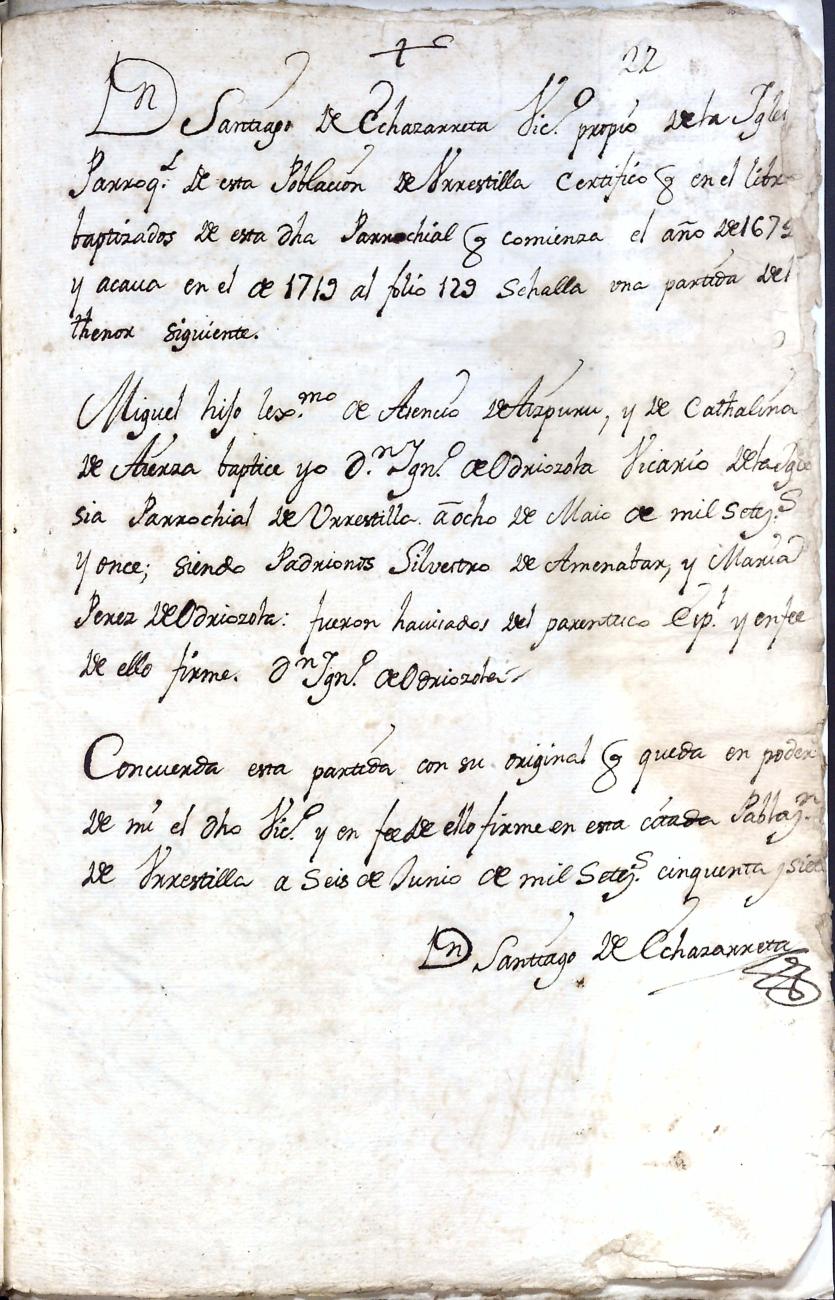 22
Dn Santiago de Echazarreta Vic.º propio de la Igles
Parroq.l de esta Poblacion de Vrrestilla Certifico q en el libro
baptizados de esta dha Parrochial q comienza el año de 1679
y acaua en el de 1719 al folio 129 Sehalla vna partida del
thenor siguiente.
Miguel hijo lex.mo de Asencio de Aizpuru, y de Cathalina
de Aierza baptice yo d.n Ign.º de Odriozola Vicario de la Igle
sia Parrochial de Vrrestilla a ocho de Maio de mil Setez.s
y once; siendo Padrinos Silvestro de Amenabar, y Maria
Perez de Odriozola: fueron hauisados del parentesco Esp.l y en fee
de ello firme. dn Ign.º de Odriozola
Concuerda esta partida con su original q queda en poder
de mi el dho Vic.º y en fee de ello firme en esta Poblaz.n
de Vrrestilla a Seis de Junio de mil Setez.s cinquenta y siete
Dn Santiago de Echazarreta